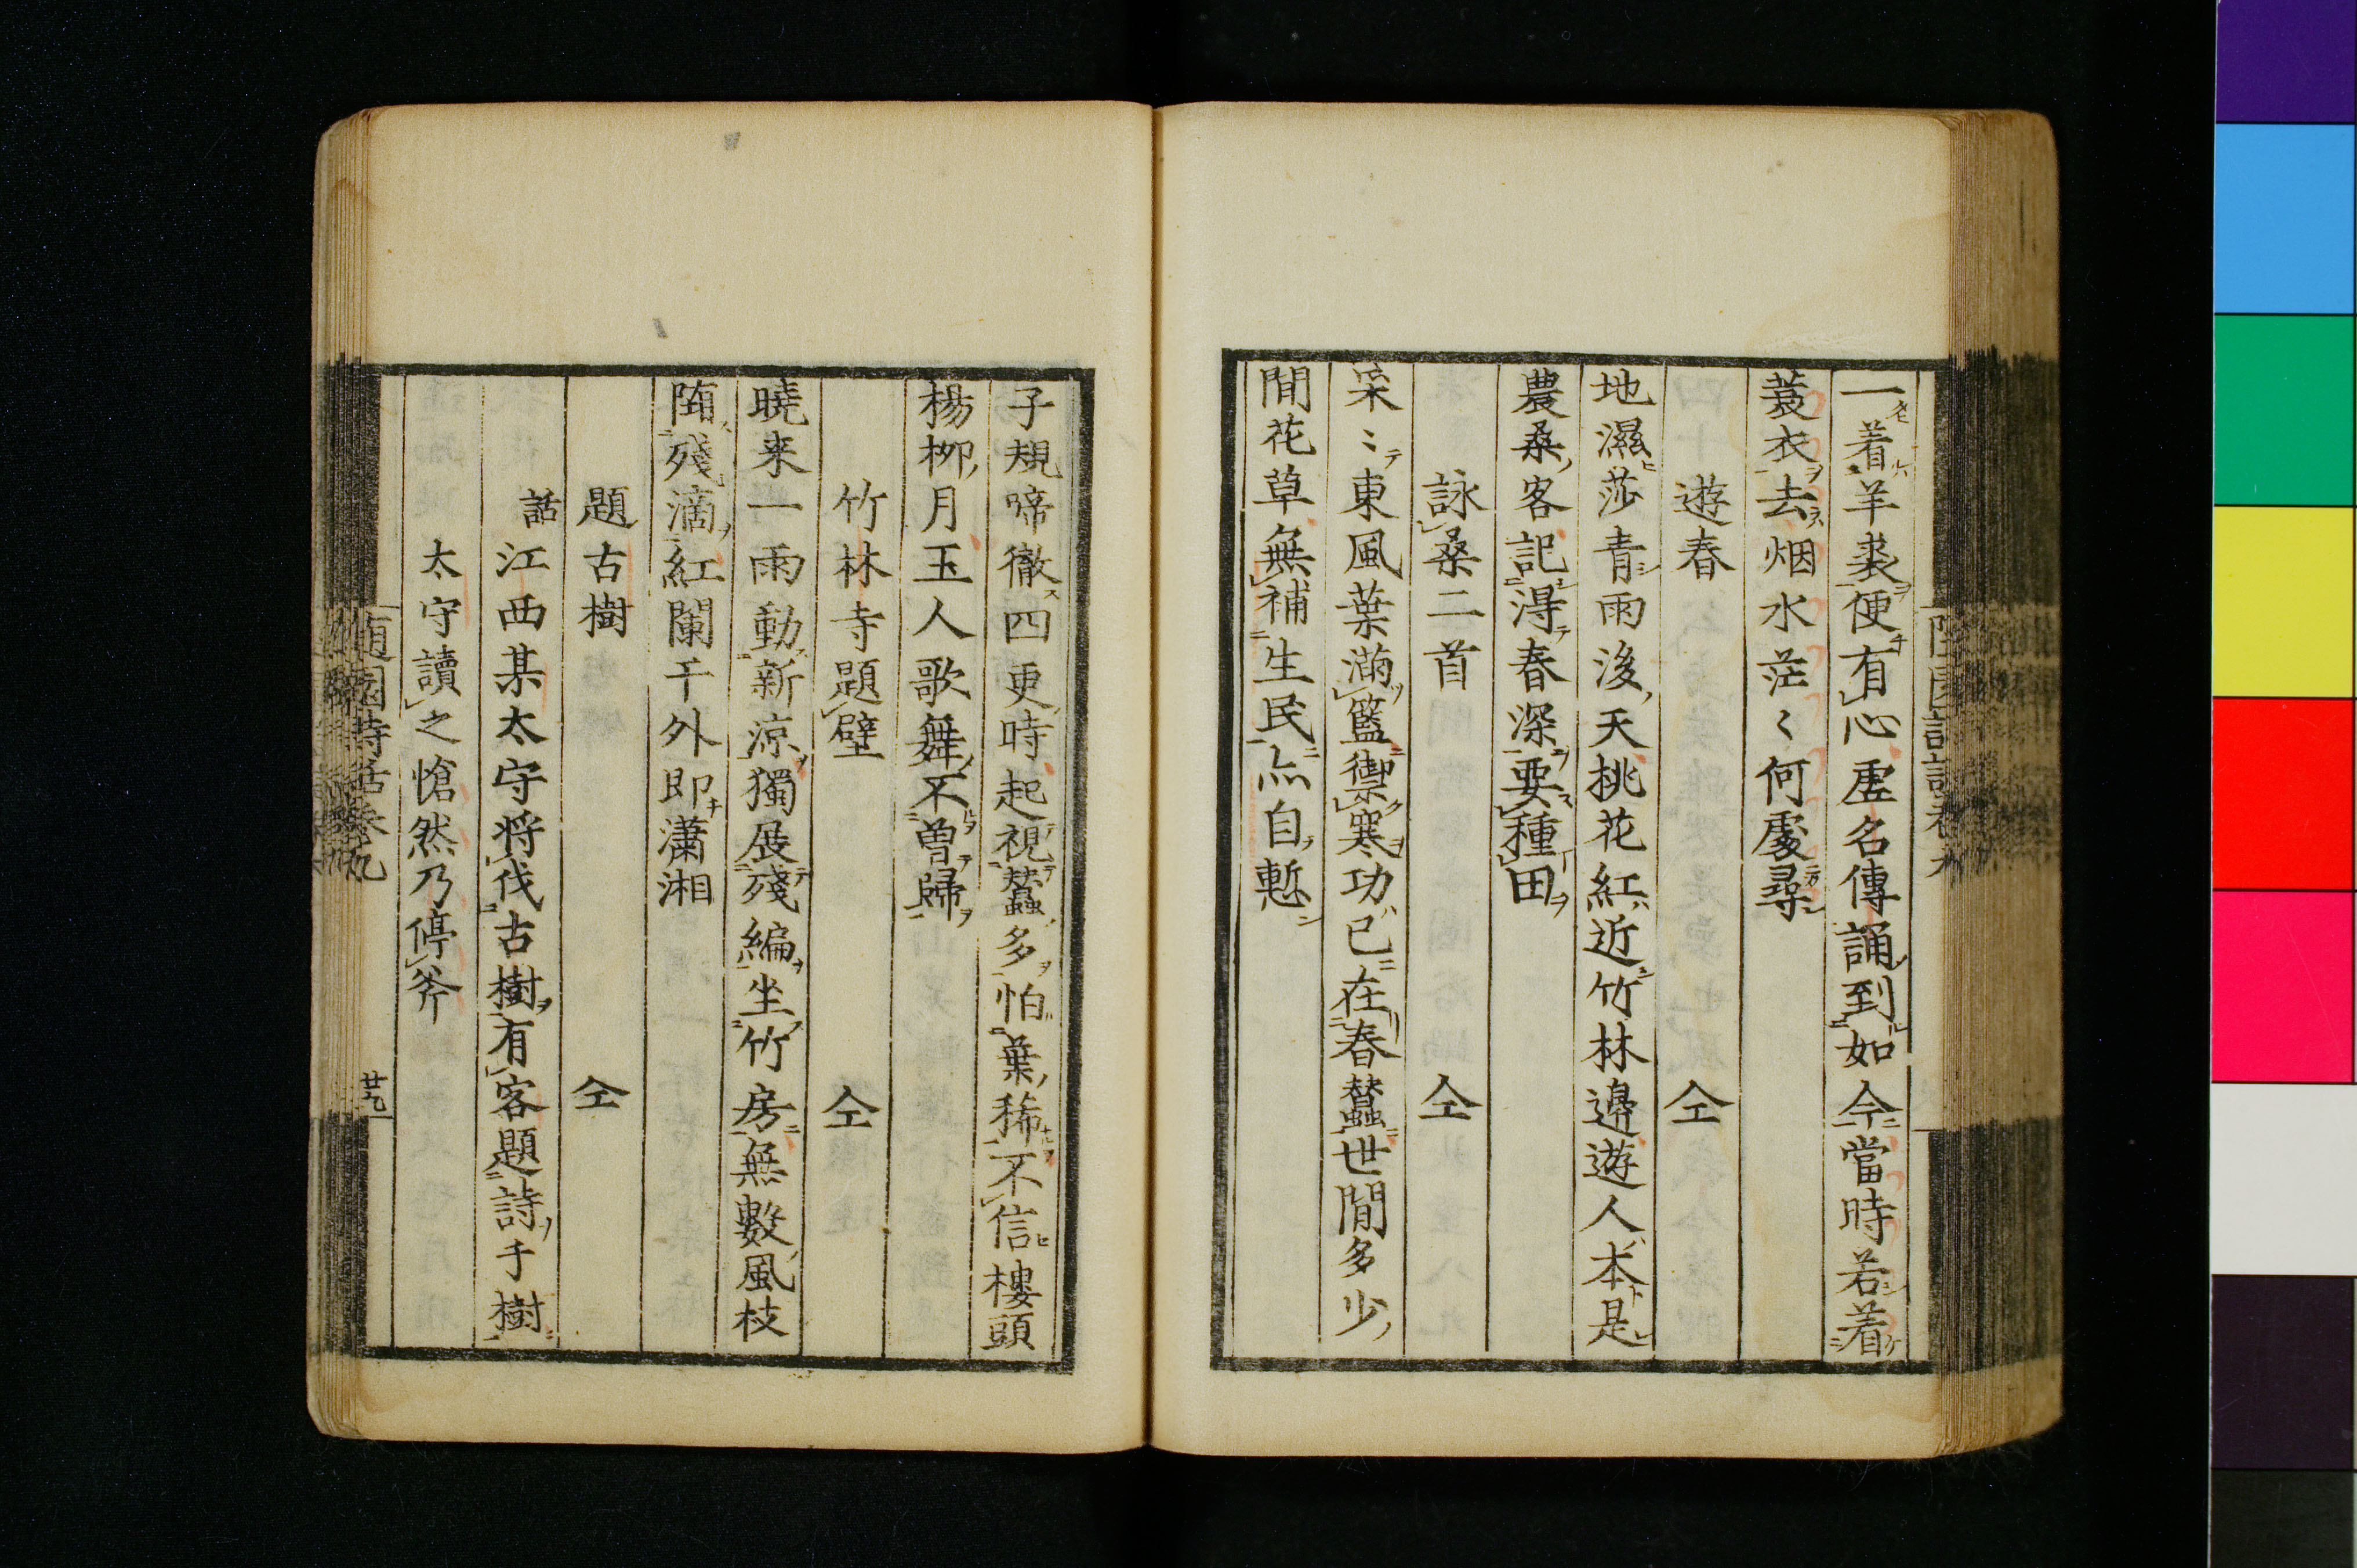 一着羊裘便有心虚名傳誦到如今當時若着
蓑衣去烟水茫〻何處尋
遊春　仝
地濕莎青雨後天桃花紅近竹林邊遊人本是
農桑客記得春深要種田
詠桑二首　仝
采〻東風葉滿籃禦寒功已在春蠶世間多少
閒花草無補生民亦自慙
子規啼徹四更時起視蠶多怕葉稀不信樓頭
楊柳月玉人歌舞不曽歸
竹林寺題壁　仝
曉来一雨動新凉獨展殘編坐竹房無數風枝
随殘滴紅闌干外即瀟湘
題古樹　仝
話江西某太守将伐古樹有客題詩于樹
太守讀之愴然乃停斧
随園詩話巻九
廿九